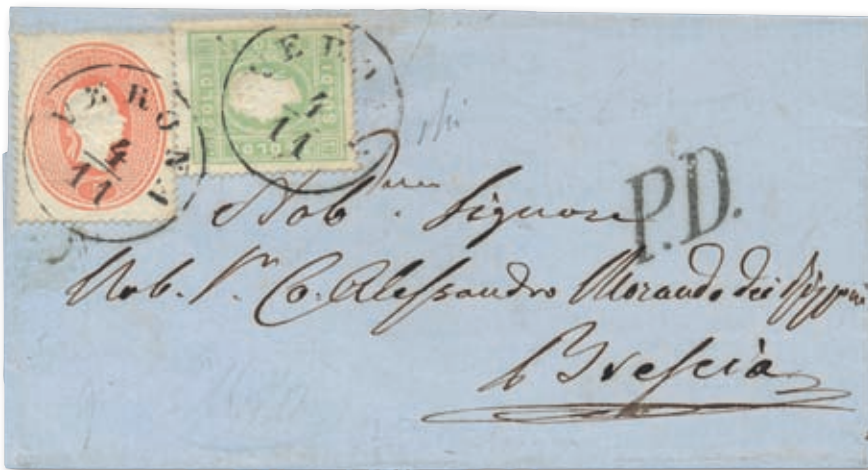 VERONA
4
11
VERONA
4
11
SOLDI
P.D.
Nob. Signore
Nob. Sr. Co. Alessandro Morando dei
Brescia